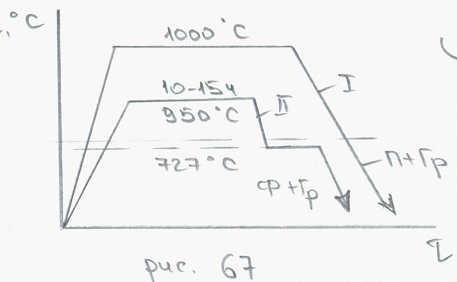 ,°C
1000°C
I
10-15ч
II
950°C
727°C
П+Гр
Ф+Гр
τ
рис. 67